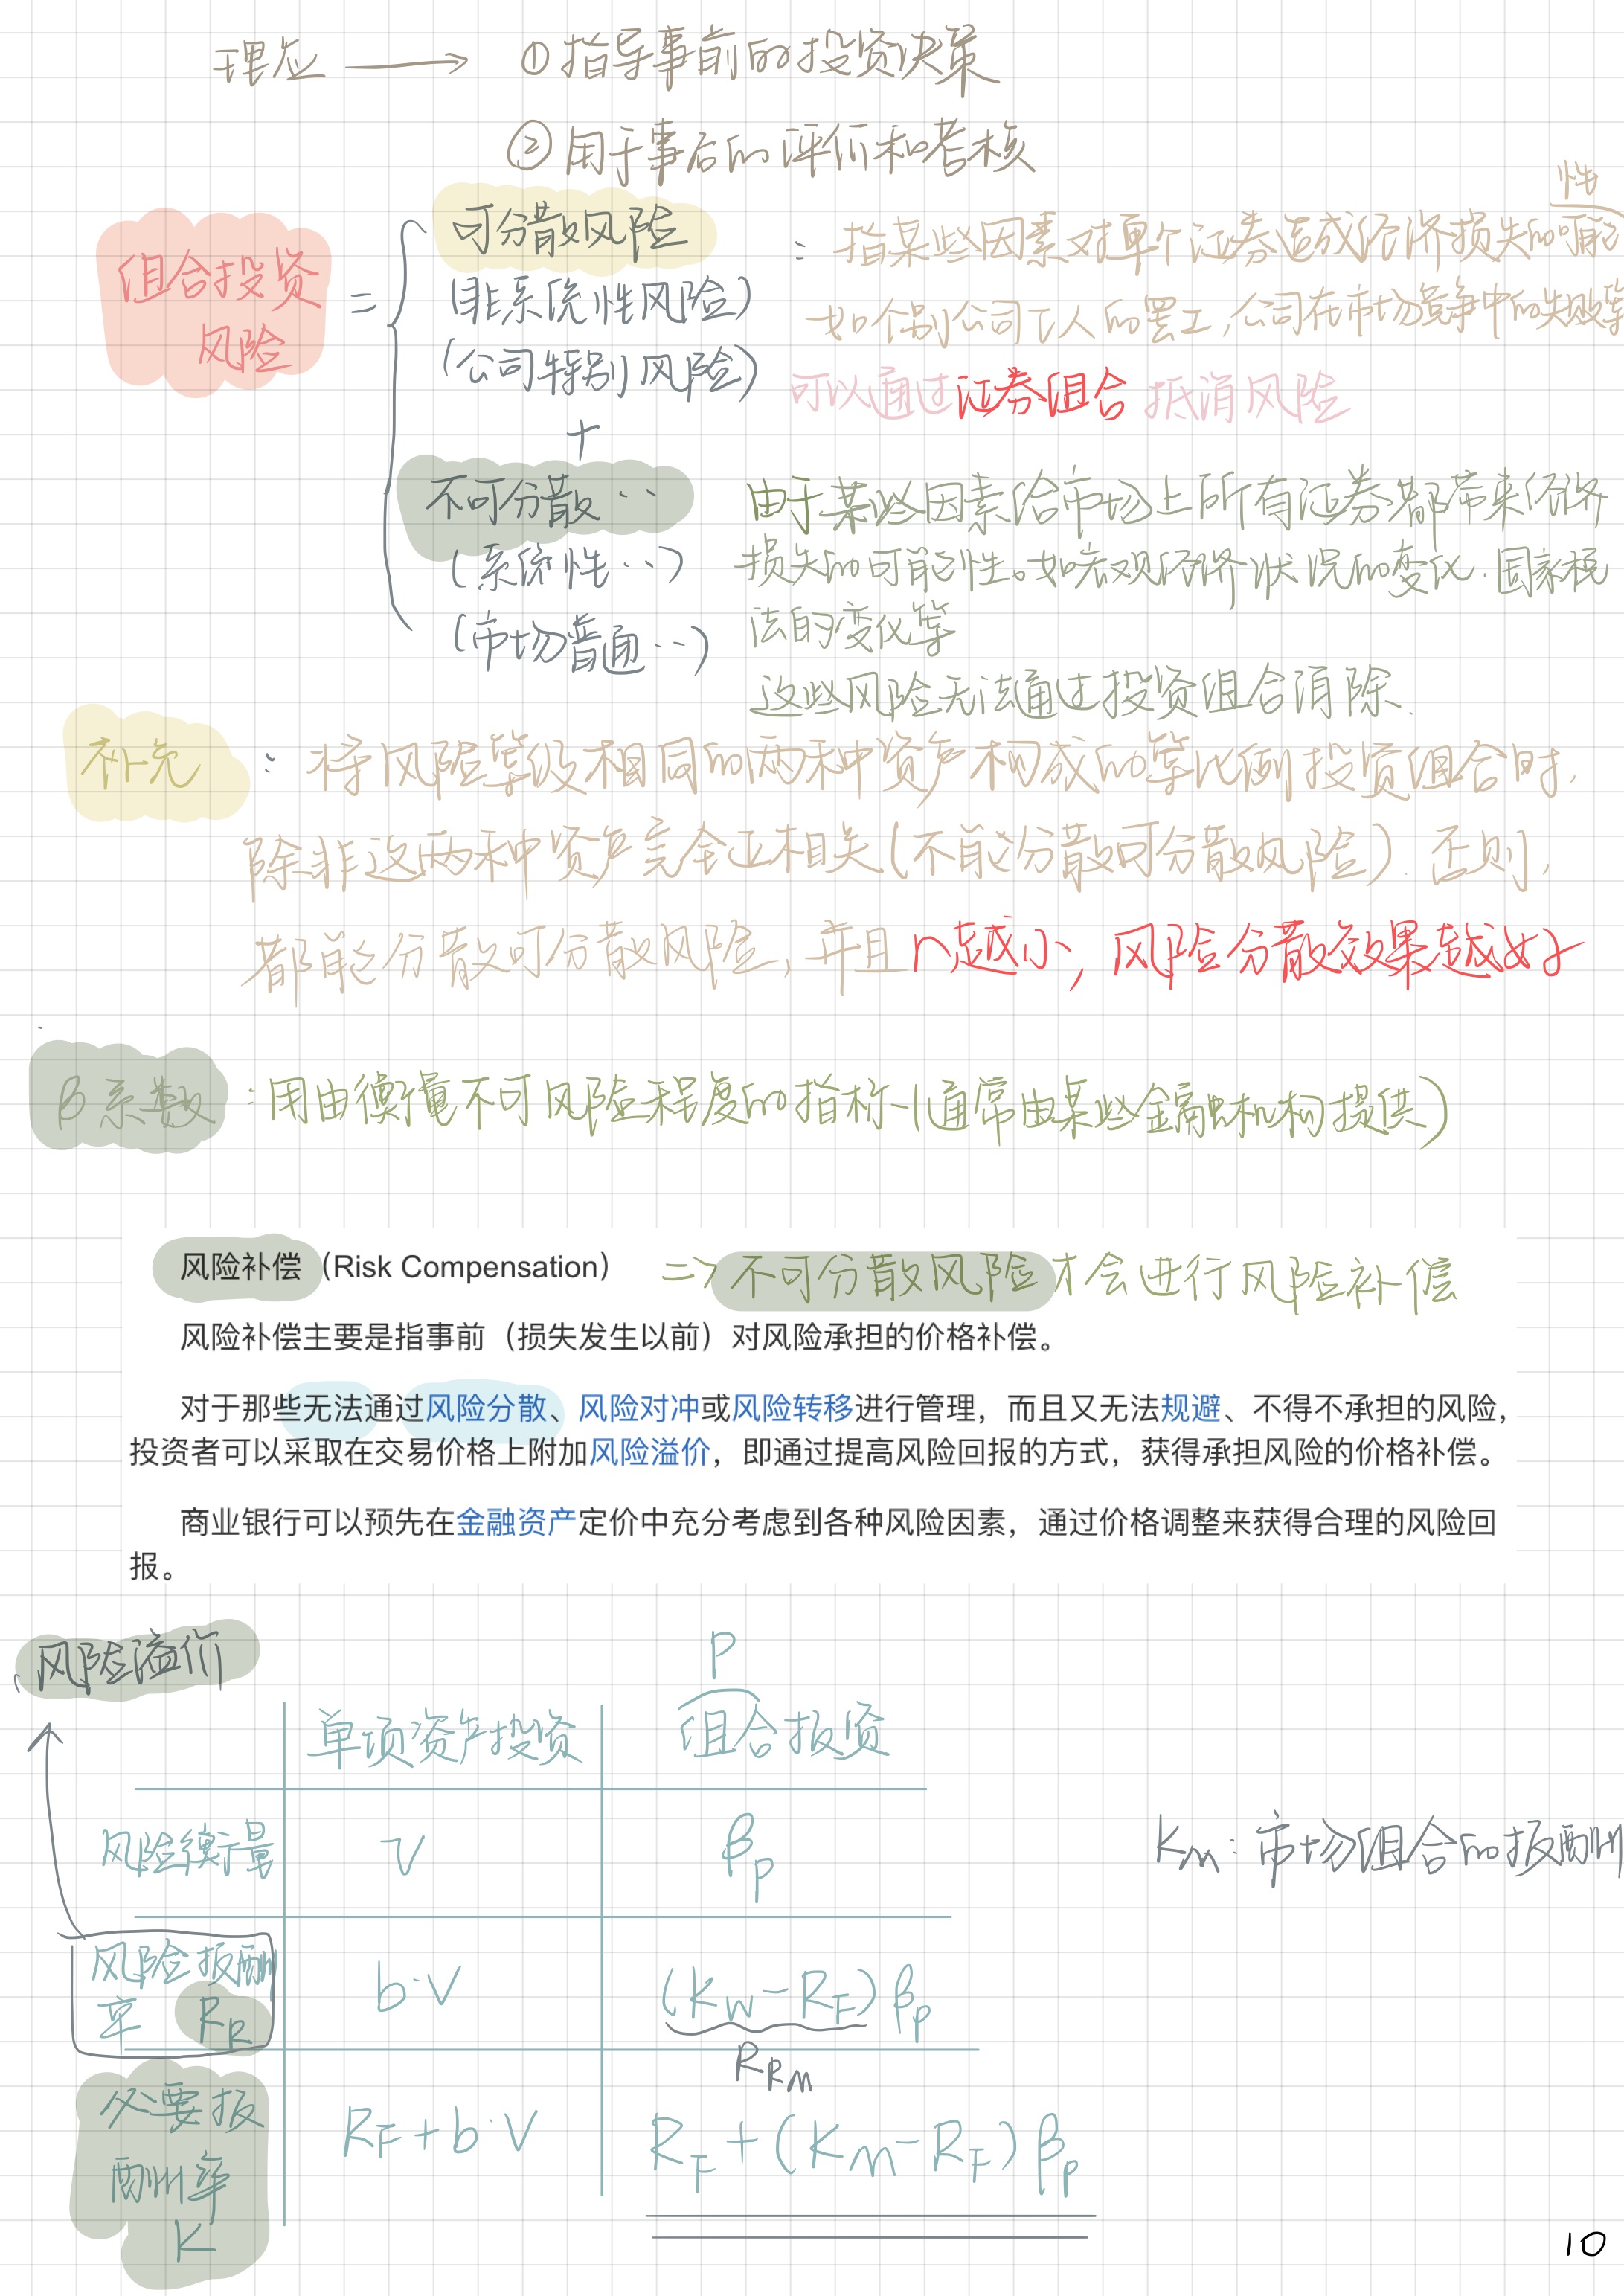 理应 → ①指导事前的投资决策
②用于事后的评价和考核
组合投资
风险
=
可分散风险
(非系统性风险)
(公司特别风险)
+
不可分散··
(系统性··)
(市场普通··)
: 指某些因素对单个证券造成经济损失的可能性
如个别公司工人的罢工,公司在市场竞争中的失败等
可以通过证券组合抵消风险
由于某些因素给市场上所有证券都带来经济
损失的可能性。如宏观经济状况的变化.国家税
法的变化等
这些风险无法通过投资组合消除.
补充 : 将风险等级相同的两种资产构成的等比例投资组合时,
除非这两种资产完全正相关(不能分散可分散风险).否则,
都能分散可分散风险,并且r越小,风险分散效果越好
β系数 : 用由衡量不可风险程度的指标-(通常由某些金融机构提供)
风险补偿（Risk Compensation） => 不可分散风险才会进行风险补偿
风险补偿主要是指事前（损失发生以前）对风险承担的价格补偿。
对于那些无法通过风险分散、风险对冲或风险转移进行管理，而且又无法规避、不得不承担的风险，
投资者可以采取在交易价格上附加风险溢价，即通过提高风险回报的方式，获得承担风险的价格补偿。
商业银行可以预先在金融资产定价中充分考虑到各种风险因素，通过价格调整来获得合理的风险回
报。
风险溢价
P
单项资产投资 组合投资
风险衡量 V βp
Km:市场组合的报酬
风险报酬
率 RR b·V (KW-RF)βp
RRm
必要报
酬率
K
RF+b·V RF+(Km-RF)βp
10